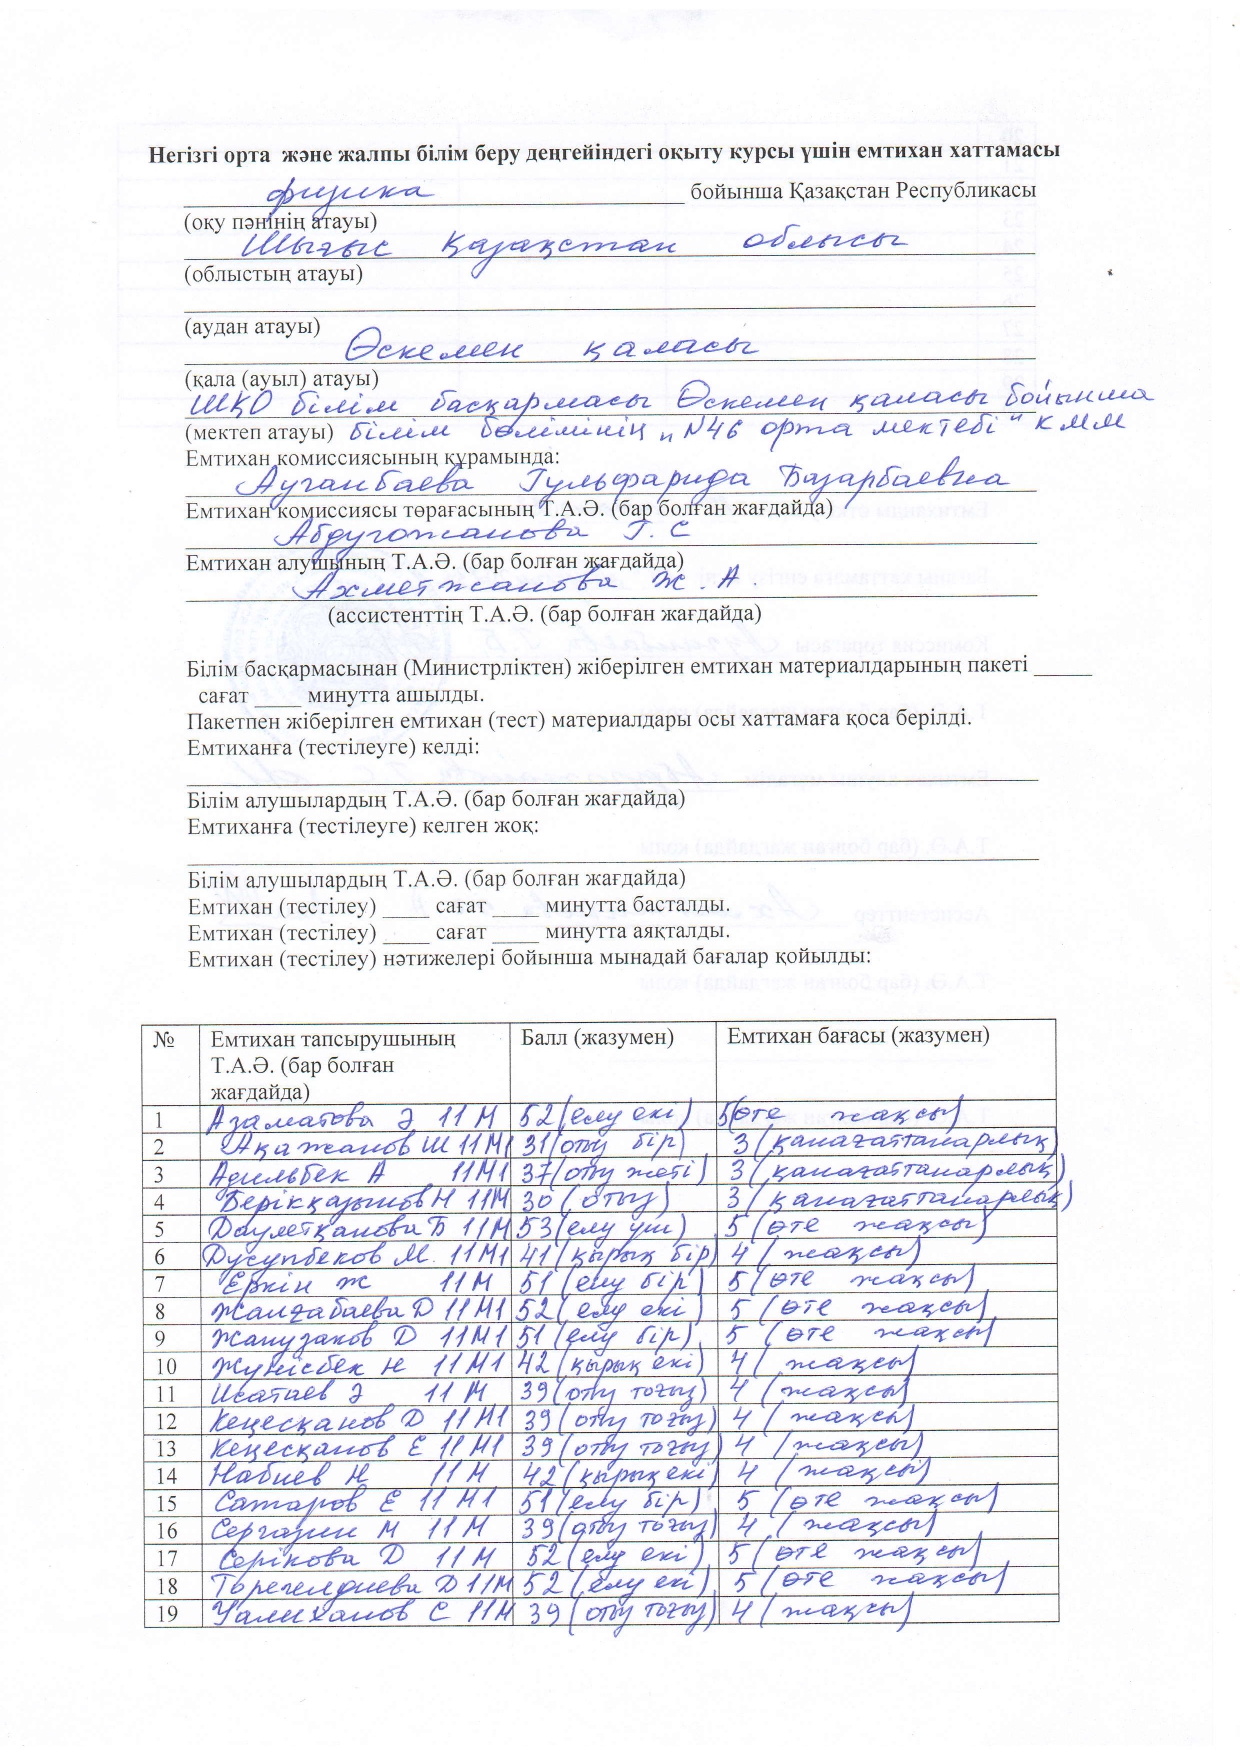 Негізгі орта және жалпы білім беру деңгейіндегі оқыту курсы үшін емтихан хаттамасы
физика бойынша Қазақстан Республикасы
(оқу пәнінің атауы)
Шығыс Қазақстан облысы
(облыстың атауы)
(аудан атауы)
Өскемен қаласы
(қала (ауыл) атауы)
ШҚО білім басқармасы Өскемен қаласы бойынша
(мектеп атауы) білім бөлімінің „N46 орта мектебі" КММ
Емтихан комиссиясының құрамында:
Ауганбаева Гульфарида Базарбаевна
Емтихан комиссиясы төрағасының Т.А.Ә. (бар болған жағдайда)
Абдугожанова Г. С
Емтихан алушының Т.А.Ә. (бар болған жағдайда)
Ахметжанова Ж. А.
(ассистенттің Т.А.Ә. (бар болған жағдайда)
Білім басқармасынан (Министрліктен) жіберілген емтихан материалдарының пакеті _____
сағат ____ минутта ашылды.
Пакетпен жіберілген емтихан (тест) материалдары осы хаттамаға қоса берілді.
Емтиханға (тестілеуге) келді:
Білім алушылардың Т.А.Ә. (бар болған жағдайда)
Емтиханға (тестілеуге) келген жоқ:
Білім алушылардың Т.А.Ә. (бар болған жағдайда)
Емтихан (тестілеу) ____ сағат ____ минутта басталды.
Емтихан (тестілеу) ____ сағат ____ минутта аяқталды.
Емтихан (тестілеу) нәтижелері бойынша мынадай бағалар қойылды:
№ Емтихан тапсырушының Балл (жазумен) Емтихан бағасы (жазумен)
Т.А.Ә. (бар болған
жағдайда)
1 Азаматова Ә 11 М 52 (елу екі) 5(өте жақсы)
2 Ақажанов Ш 11М1 31(отыз бір) 3 (қанағаттанарлық)
3 Адильбек А 11М1 37(отыз жеті) 3 (қанағаттанарлық)
4 Беріkқазынов Н 11М 30 (отыз) 3 (қанағаттанарлық)
5 Даулетқанова Б 11М 53(елу үш) 5 (өте жақсы)
6 Дусупбеков М. 11М1 41 (қырық бір) 4 (жақсы)
7 Еркін Ж 11М 51 (елу бір) 5 (өте жақсы)
8 Жалғабаева Д 11М1 52 (елу екі) 5 (өте жақсы)
9 Жанузаков Д 11М1 51 (елу бір) 5 (өте жақсы)
10 Жүнісбек Н 11М1 42 (қырық екі) 4 (жақсы)
11 Исатаев Ә 11 М 39 (отыз тоғыз) 4 (жақсы)
12 Кеңесқанов Д 11М1 39 (отыз тоғыз) 4 (жақсы)
13 Кеңесқанов Е 11М1 39 (отыз тоғыз) 4 (жақсы)
14 Набиев Н 11 М 42 (қырық екі) 4 (жақсы)
15 Сатаров Е 11 М1 51 (елу бір) 5 (өте жақсы)
16 Сергазин М 11 М 39 (отыз тоғыз) 4 (жақсы)
17 Серікова Д 11 М 52 (елу екі) 5 (өте жақсы)
18 Төрегелдиева Д 11М 52 (елу екі) 5 (өте жақсы)
19 Уалиханов С 11М 39 (отыз тоғыз) 4 (жақсы)